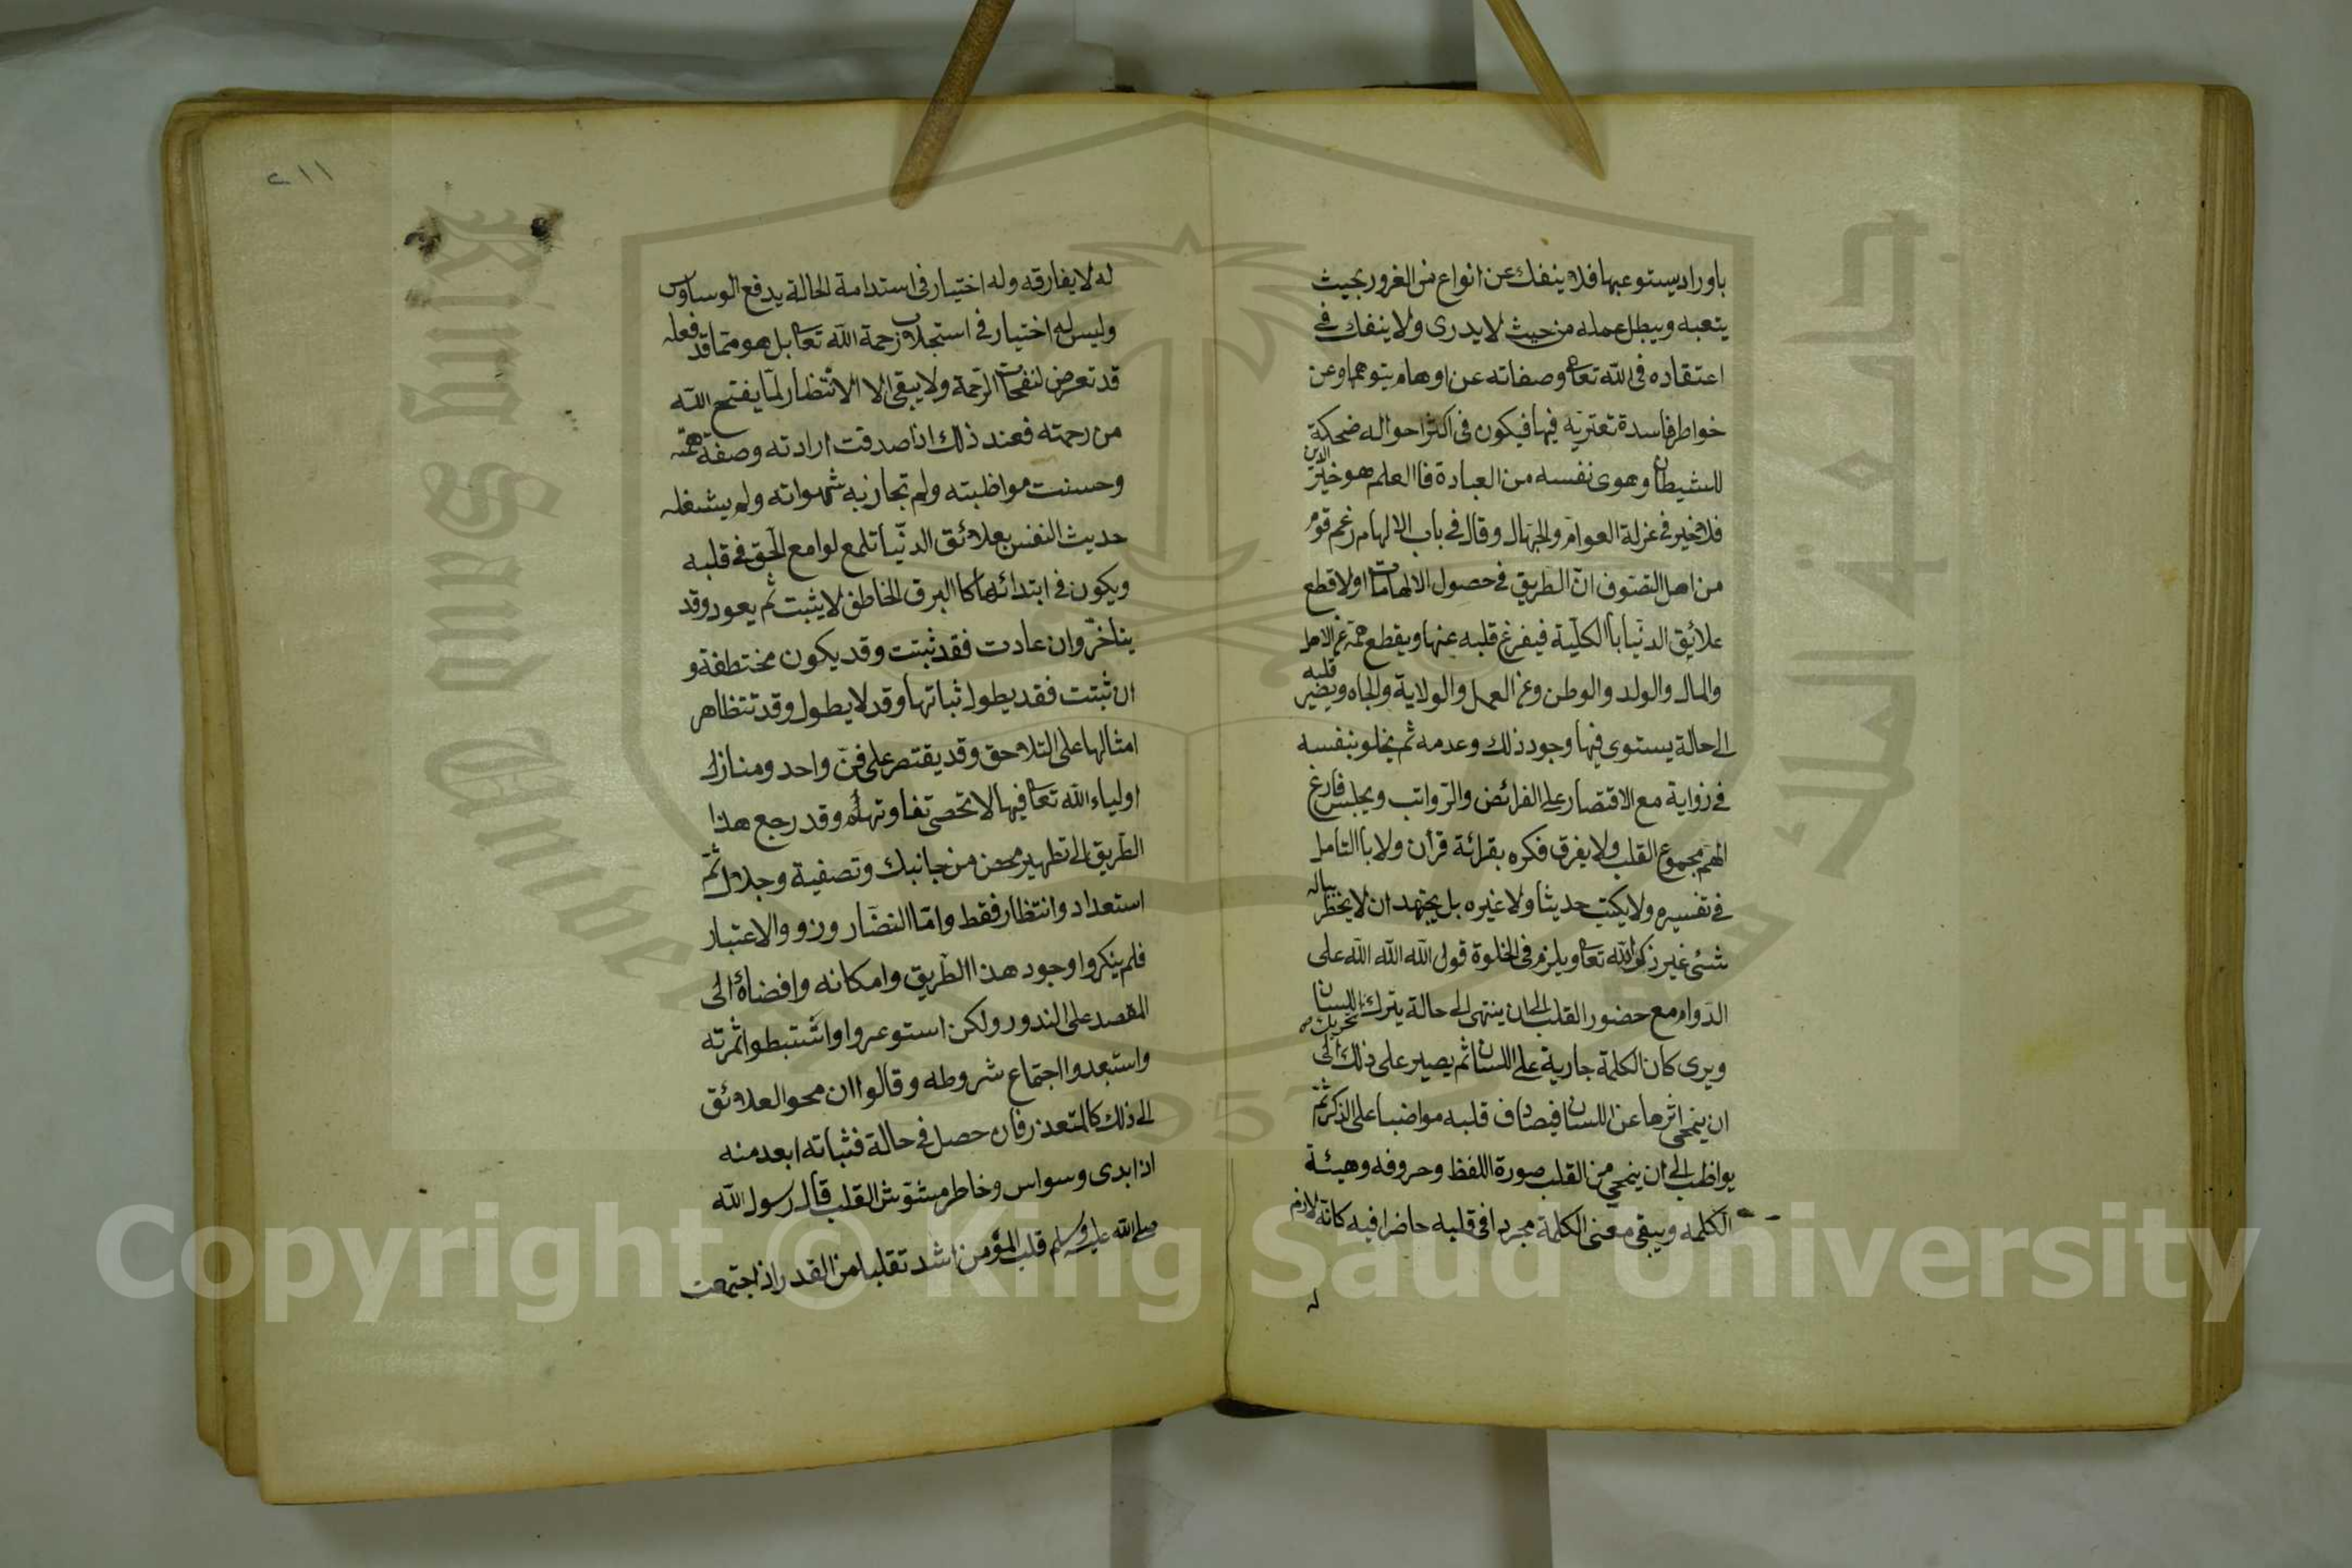 باوراد يستوعبها فلا ينفك عن انواع من الغرور بحيث
يتعبه ويبطل عمله من حيث لا يدرى ولا ينفك فى
اعتقاده فى الله تعا وصفاته عن اوهام يتوهمها وعن
خواطر فاسدة تعتريه فيها فيكون فى اكثر احواله ضحكة
للشيطان وهوى نفسه من العبادة فاالعلم هو خير الدين
فلا خير فى عزلة العوام والجهال وقال فى باب الالهام زعم قوم
من اهل التصوف ان الطريق فى حصول الالهامات اولا قطع
علايق الدنيا باالكلية فيفرغ قلبه عنها ويقطع همة عن الاهل
والمال والولد والوطن وعن العمل والولاية والجاه ويضير قلبه
الى حالة يستوى فيها وجود ذلك وعدمه ثم يخلو بنفسه
فى زواية مع الاقتصار على الفرائض والرواتب ويجلس فارغ
الهم مجموع القلب ولا يفرق فكره بقرائة قرأن ولا باالتامل
فى تفسيره ولا يكتب حديثا ولا غيره بل يجتهد ان لا يخظر بباله
شئى غير ذكر الله تعا ويلزم فى الخلوة قول الله الله الله على
الدوام مع حضور القلب الى ان ينتهى الى حالة يترك تحريك اللسان
ويرى كان الكلمة جارية على اللسان ثم يصير على ذلك الى
ان ينمحى اثرها عن اللسان فيصادف قلبه مواضبا على الذكر ثم
يواظب الى ان ينمحى من القلب صورة اللفظ وحروفه وهيئة
الكلمة ويبقى معنى الكلمة مجردا فى قلبه حاضرا فيه كانه لازم
له
٢١١
له لا يفارقه وله اختيار فى استدامة الحالة يدفع الوساوس
وليس له اختيار فى استجلاب رحمة الله تعا بل هو مما قد فعله
قد تعرض لنفحات الرحمة ولا يبقى الا الانتظار لما يفتح الله
من رحمته فعند ذلك اذا صدقت ارادته وصفة همته
وحسنت مواظبته ولم تجازبه شهواته ولم يشغله
حديث النفس بعلائق الدنيا تلمع لوامع الحق فى قلبه
ويكون فى ابتدائها كاالبرق الخاطف لا يثبت ثم يعود وقد
يتاخر وان عادت فقد ثبتت وقد يكون مختطفة و
ان ثبتت فقد يطول ثباتها وقد لا يطول وقد تتظاهر
امثالها على التلاحق وقد يقتصر على فن واحد ومنازل
اولياء الله تعا فيها لا تحصى تفاوتهم وقد رجع هذا
الطريق الى تطهير محض من جانبك وتصفية وجلال ثم
استعداد وانتظار فقط واما النضار وزو والاعتبار
فلم ينكروا وجود هذا الطريق وامكانه وافضائه الى
المقصد على الندور ولكن استوعروا واستبطوا ثمرته
واستبعدوا اجتماع شروطه وقالوا ان محو العلائق
الى ذلك كالمتعذر فان حصل فى حالة فثباته ابعد منه
اذ ابدى وسواس وخاطر مشوش القلب قال رسول الله
صلى الله عليه وسلم قلب المؤمن اشد تقلبا من القدر اذ اجتمعت
Copyright © King Saud University
King Saud University
1957